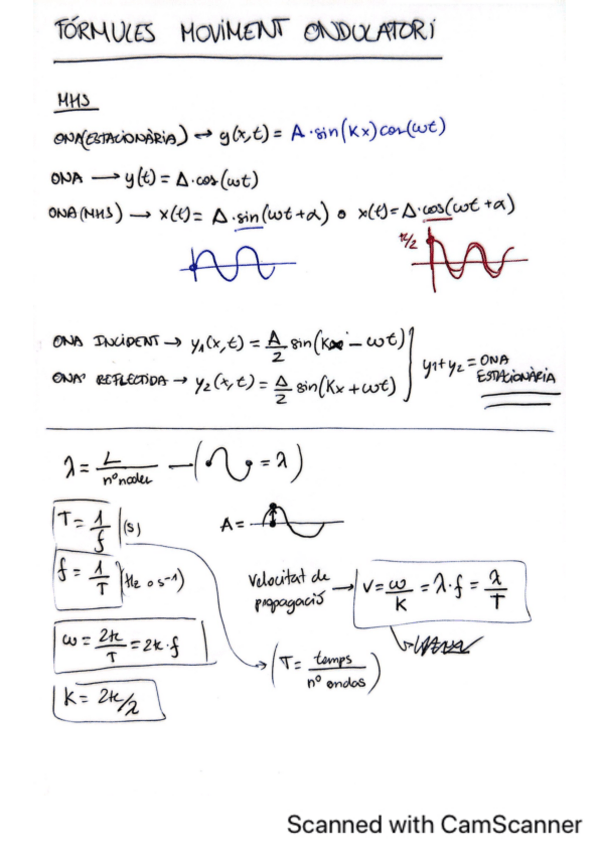 FÓRMULES MOVIMENT ONDULATORI
MHS
ONA(ESTACIONÀRIA) → y(x,t) = A·sin(Kx)cos(ωt)
ONA → y(t) = A·cos(ωt)
ONA(MHS) → x(t) = A·sin(ωt+α) o x(t) = A·cos(ωt+α)
π/2
ONA INCIDENT → y₁(x,t) = A/2 sin(Kx - ωt)
ONA REFLECTIDA → y₂(x,t) = A/2 sin(Kx + ωt)
y₁+y₂ = ONA ESTACIONÀRIA
λ = L/nº nodes — ( = λ)
T = 1/f (s)
A =
f = 1/T (Hz o s⁻¹)
Velocitat de propagació → v = ω/K = λ·f = λ/T
ω = 2π/T = 2π·f
(T = temps/nº ondas)
K = 2π/λ
Scanned with CamScanner